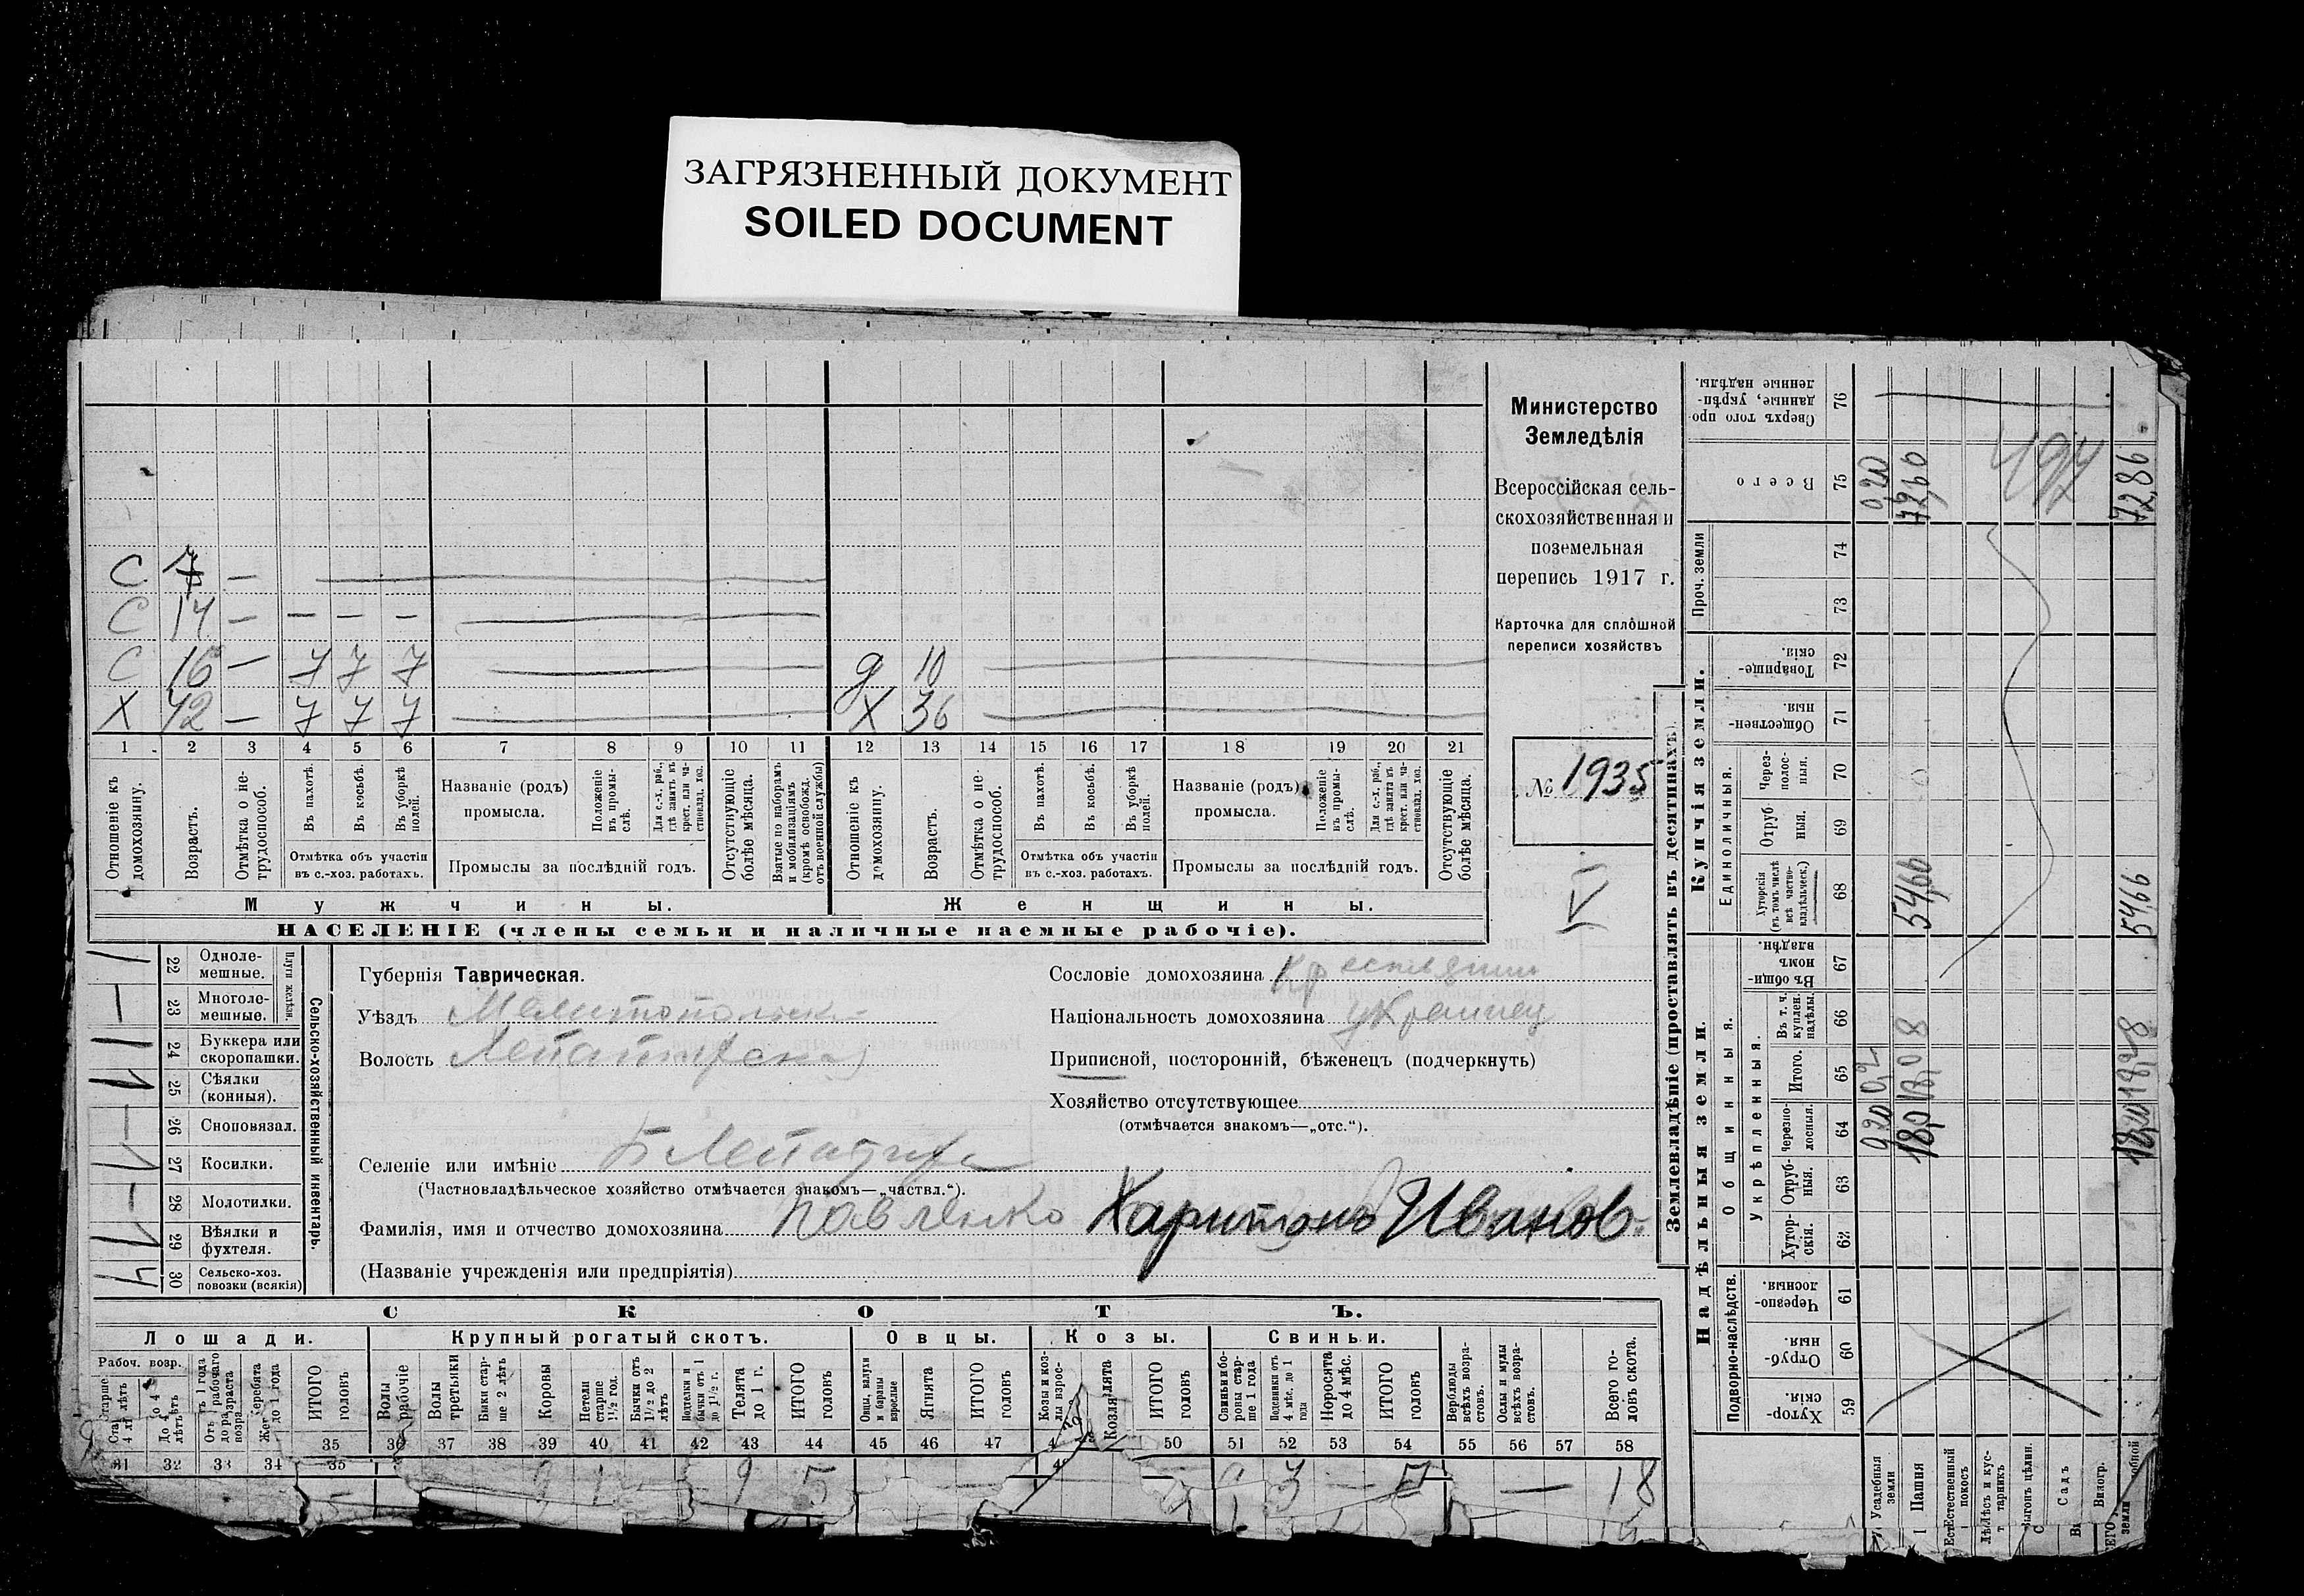 ЗАГРЯЗНЕННЫЙ ДОКУМЕНТ
SOILED DOCUMENT
С 7 —
С 14 — — — —
С 16 — 7 7 7
Х 42 — 7 7 7
д 10
Х 36
1 2 3 4 5 6 7 8 9 10 11 12 13 14 15 16 17 18 19 20 21
Отношеніе къ домохозяину.
Возрастъ.
Отмѣтка о нетрудоспособ.
Въ пахотѣ.
Въ косьбѣ.
Въ уборкѣ полей.
Отмѣтка объ участіи
въ с.-хоз. работахъ.
Названіе (родъ)
промысла.
Положеніе въ промыслѣ.
Для с.-х. раб., гдѣ занятъ въ крест. или частновлад. хоз.
Промыслы за послѣдній годъ.
Отсутствующіе болѣе мѣсяца.
Взятые по наборамъ и мобилизаціямъ (кромѣ освобожд. отъ военной службы)
Отношеніе къ домохозяину.
Возрастъ.
Отмѣтка о нетрудоспособ.
Въ пахотѣ.
Въ косьбѣ.
Въ уборкѣ полей.
Отмѣтка объ участіи
въ с.-хоз. работахъ.
Названіе (родъ)
промысла.
Положеніе въ промыслѣ.
Для с.-х. раб., гдѣ занята въ крест. или частновлад. хоз.
Промыслы за послѣдній годъ.
Отсутствующіе болѣе мѣсяца.
Мужчины.
Женщины.
НАСЕЛЕНІЕ (члены семьи и наличные наемные рабочіе).
Министерство
Земледѣлія
Всероссійская сель-
скохозяйственная и
поземельная
перепись 1917 г.
Карточка для сплошной
переписи хозяйствъ
№ 1935
V
22 Одноле-
мешные.
23 Многоле-
мешные.
Плуги желѣзн.
24 Буккера или
скоропашки.
25 Сѣялки
(конныя).
26 Сноповязал.
27 Косилки.
28 Молотилки.
29 Вѣялки и
фухтеля.
30 Сельско-хоз.
повозки (всякія)
Сельско-хозяйственный инвентарь.
Губернія Таврическая.
Уѣздъ Мелитопольск.
Волость
Селеніе или имѣніе
(Частновладѣльческое хозяйство отмѣчается знакомъ—„частвл.“).
Фамилія, имя и отчество домохозяина Павленко Харитонъ Иванов.
(Названіе учрежденія или предпріятія)
Сословіе домохозяина крестьянин
Національность домохозяина украинец
Приписной, посторонній, бѣженец (подчеркнуть)
Хозяйство отсутствующее
(отмѣчается знакомъ—„отс.“).
СКОТЪ.
Лошади. Крупный рогатый скотъ. Овцы. Козы. Свиньи.
Рабоч. возр.
ИТОГО головъ
Волы рабочіе
Волы третьяки
Быки старше 2 лѣтъ
Коровы
Нетели старше 1½ год.
Бычки отъ 1½ до 2 лѣтъ
Телята до 1 г.
ИТОГО головъ
Овцы, валухи и бараны взрослые
Ягнята
ИТОГО головъ
Козы и козлы взрос-
Козлята
ИТОГО головъ
Свиньи и боровы старше 1 года
Подсвинки отъ 4 мѣс. до 1 года
Поросята до 4 мѣс.
ИТОГО головъ
Верблюды всѣхъ возрастовъ.
Ослы и мулы всѣхъ возрастовъ.
Всего головъ скота.
31 32 33 34 35 36 37 38 39 40 41 42 43 44 45 46 47 50 51 52 53 54 55 56 57 58
5 3 — 18
Землевладѣніе (проставлять въ десятинахъ).
Купчія земли.
Надѣльныя земли.
Сверхъ того проданные, укрѣпленные надѣлы. 76
Всего 75 0,20 72,60 72,86
494
Проч. земли 74 73
Товарищескія. 72
Общественныя. 71
Единоличныя.
Черезполосныя. 70
Отрубныя. 69
Хуторскія (въ томъ числѣ всѣ частновладѣльческ.) 68 54,60 54,66
Въ общинномъ владѣн. 67
Общинныя.
Укрѣпленныя.
Въ т. ч. куплен. надѣлы. 66
Итого. 65 0,2 18,08 18,28
Черезполосныя. 64 0,20
Отрубныя. 63
Хуторскія. 62
Подворно-наслѣдств.
Черезполосныя. 61
Отрубныя. 60
Хуторскія. 59
Усадебныя земли
Пашня
Естественный покосъ
Лѣсъ и кустарникъ
Выгонъ цѣлин.
Садъ
Виногр.